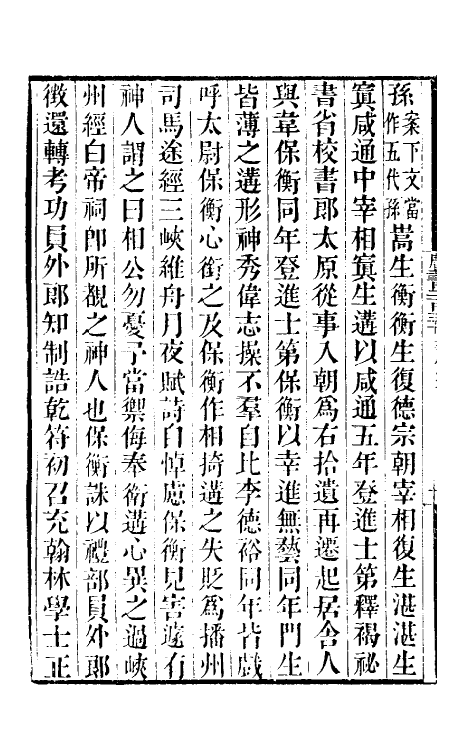 孫案下文當作五代孫嵩生衡衡生復德宗朝宰相復生湛湛生
寘咸通中宰相寘生遘以咸通五年登進士第釋褐祕
書省校書郎太原從事入朝爲右拾遺再遷起居舍人
與韋保衡同年登進士第保衡以幸進無藝同年門生
皆薄之遘形神秀偉志操不羣自比李德裕同年皆戲
呼太尉保衡心銜之及保衡作相掎遘之失貶爲播州
司馬途經三峽維舟月夜賦詩自悼慮保衡見害遽有
神人謂之曰相公勿憂予當禦侮奉衛遘心異之過峽
州經白帝祠卽所覩之神人也保衡誅以禮部員外郎
徵還轉考功員外郎知制誥乾符初召充翰林學士正